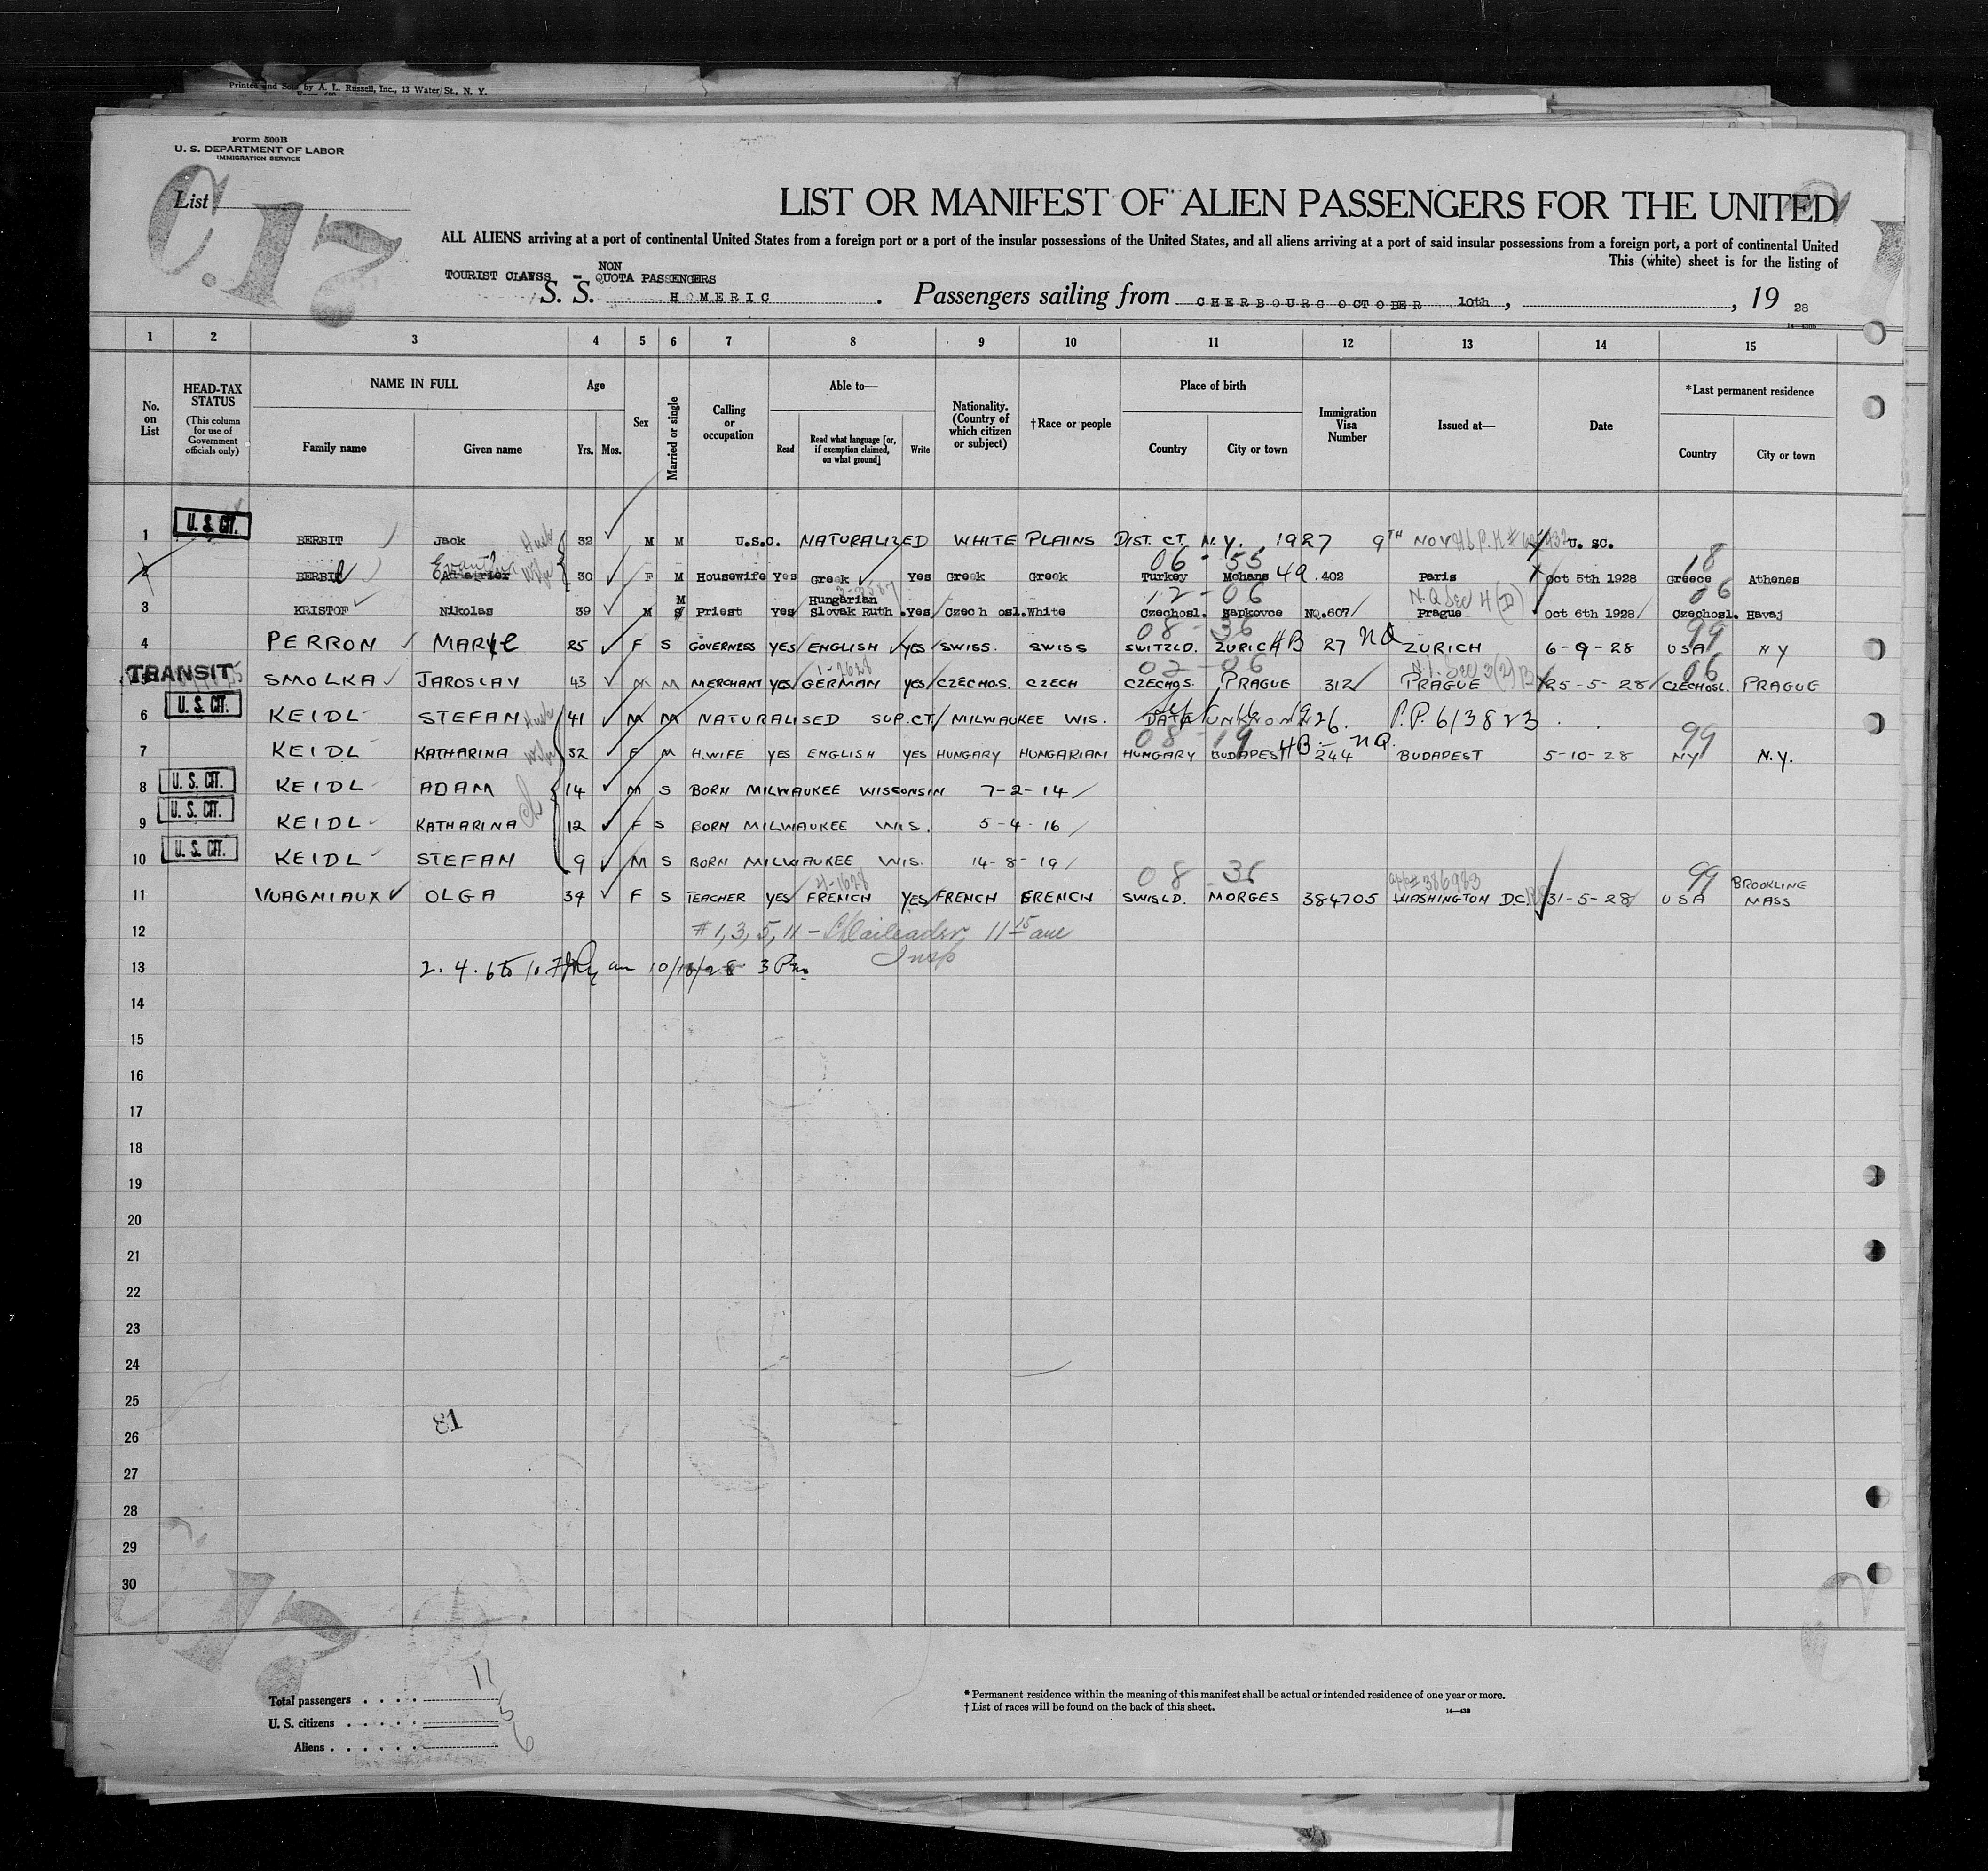 Printed and Sold by A. L. Russell, Inc., 13 Water St., N. Y.
Form 500B
U. S. DEPARTMENT OF LABOR
IMMIGRATION SERVICE
List
C.17
LIST OR MANIFEST OF ALIEN PASSENGERS FOR THE UNITED
ALL ALIENS arriving at a port of continental United States from a foreign port or a port of the insular possessions of the United States, and all aliens arriving at a port of said insular possessions from a foreign port, a port of continental United
This (white) sheet is for the listing of
TOURIST CLAWSS - NON QUOTA PASSENGERS
S. S. HOMERIC. Passengers sailing from CHERBOURG OCTOBER 10th, , 19 28
1 2 3 4 5 6 7 8 9 10 11 12 13 14 15
No. on List
HEAD-TAX STATUS
(This column for use of Government officials only)
NAME IN FULL
Family name Given name
Age
Yrs. Mos.
Sex
Married or single
Calling or occupation
Able to—
Read
Read what language [or, if exemption claimed, on what ground]
Write
Nationality. (Country of which citizen or subject)
†Race or people
Place of birth
Country City or town
Immigration Visa Number
Issued at—
Date
*Last permanent residence
Country City or town
1 U. S. CIT. BERBIT Jack Husb 32 M M U.S.C. NATURALIZED WHITE PLAINS DIST. CT. N.Y. 1927 9TH NOV U. SC.
06 - 55 18
2 BERBIT Wife 30 F M Housewife Yes Greek Yes Greek Greek Turkey Mohans 49 .402 Paris Oct 5th 1928 Greece Athenes
Hungarian 12 - 06 N.Q Sec 4 (D) 06
3 KRISTOF Nikolas 39 M M S Priest Yes Slovak Ruth .Yes Czech osl. White Czechosl. Hapkovce NQ.607 Prague Oct 6th 1928 Czechosl. Havaj
08 - 36 99
4 PERRON MARYE 25 F S GOVERNESS YES ENGLISH YES SWISS. SWISS SWITZLD. ZURICH HB 27 NQ ZURICH 6-9-28 USA NY
1-2628 02 - 06 N.I. Sec 3(2)B 06
TRANSIT SMOLKA JAROSLAV 43 M M MERCHANT YES GERMAN YES CZECHOS. CZECH CZECHOS. PRAGUE 312 PRAGUE 25-5-28 CZECHOSL. PRAGUE
6 U. S. CIT. KEIDL STEFAN Husb 41 M M NATURALISED SUP.CT. MILWAUKEE WIS. DATE UNKNOWN 1926. P.P. 613823
08 - 19 99
7 KEIDL KATHARINA Wife 32 F M H.WIFE YES ENGLISH YES HUNGARY HUNGARIAN HUNGARY BUDAPEST HB - NQ. 244 BUDAPEST 5-10-28 NY N.Y.
8 U. S. CIT. KEIDL ADAM 14 M S BORN MILWAUKEE WISCONSIN 7-2-14
9 U. S. CIT. KEIDL KATHARINA Ch 12 F S BORN MILWAUKEE WIS. 5-4-16
10 U. S. CIT. KEIDL STEFAN 9 M S BORN MILWAUKEE WIS. 14-8-19
4-1628 08 36 386983 99
11 VUAGNIAUX OLGA 34 F S TEACHER YES FRENCH YES FRENCH FRENCH SWISLD. MORGES 384705 WASHINGTON D.C. 31-5-28 USA BROOKLINE MASS
12 #1, 3, 5, 11 -
Insp
13 2. 4. 6 to 10 10/18/28 3 Pm
14
15
16
17
18
19
20
21
22
23
24
25
81
26
27
28
29
30
C.17
Total passengers 11
U. S. citizens 5
Aliens 6
* Permanent residence within the meaning of this manifest shall be actual or intended residence of one year or more.
† List of races will be found on the back of this sheet.
14—430